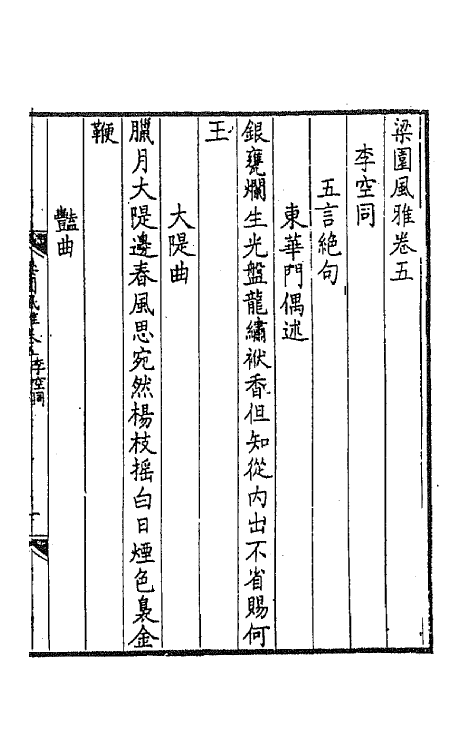 梁園風雅卷五
李空同
五言絕句
東華門偶述
銀甕爛生光盤龍繡袱香但知從內出不省賜何
王
大隄曲
臘月大隄邊春風思宛然楊枝揺白日煙色裊金
鞭
豔曲
梁園風雅卷五李空同
一